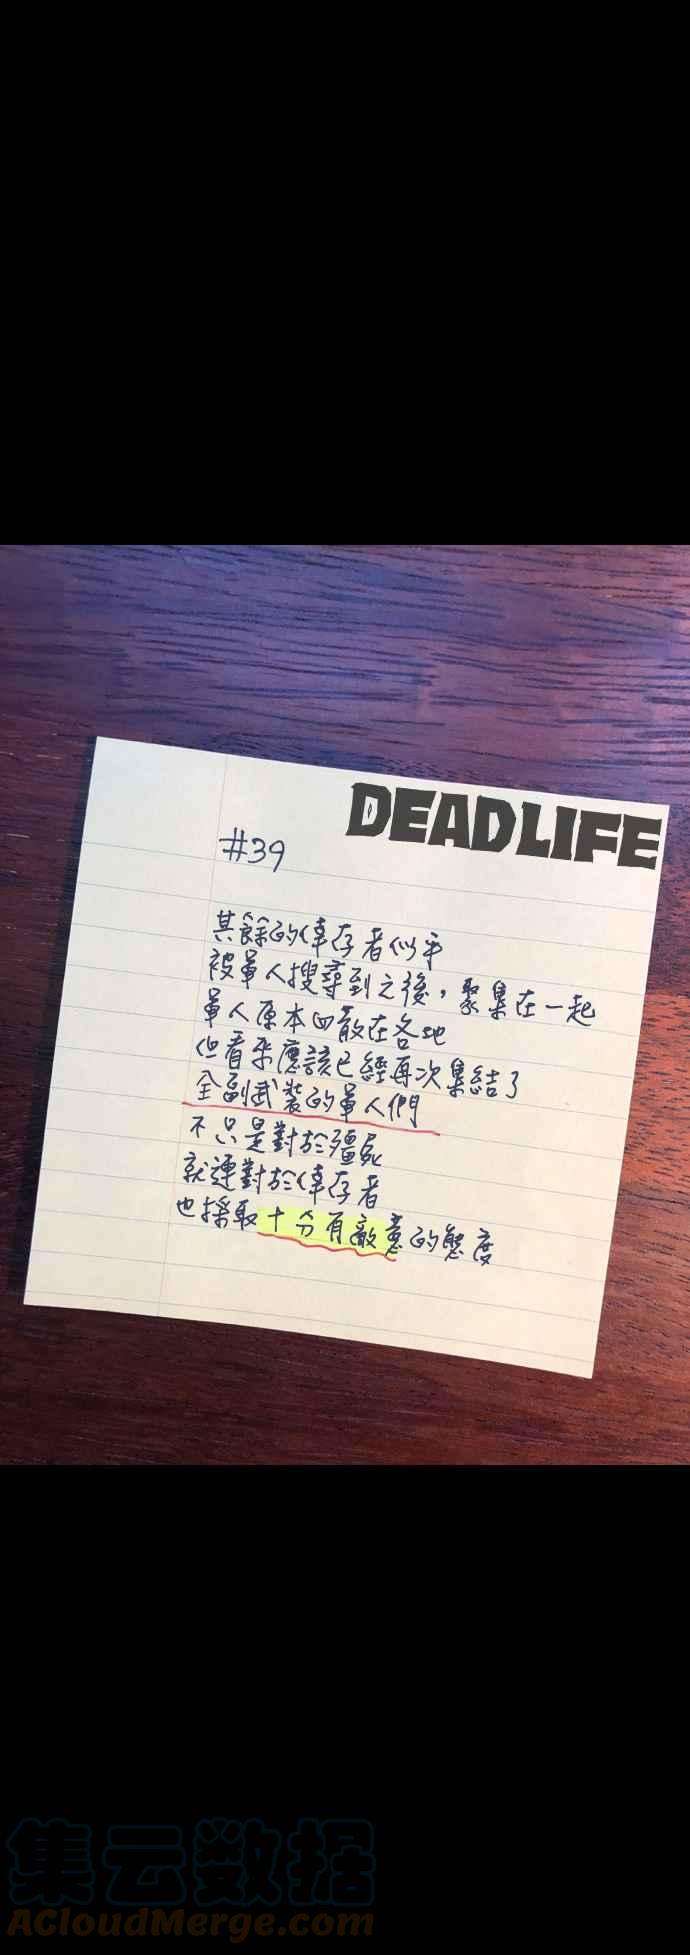 DEADLIFE
#39
其餘的倖存者似乎
被軍人搜尋到之後，聚集在一起
軍人原本四散在各地
但看來應該已經再次集結了
全副武裝的軍人們
不只是對於殭屍
就連對於倖存者
也採取十分有敵意的態度
集云数据
ACloudMerge.com